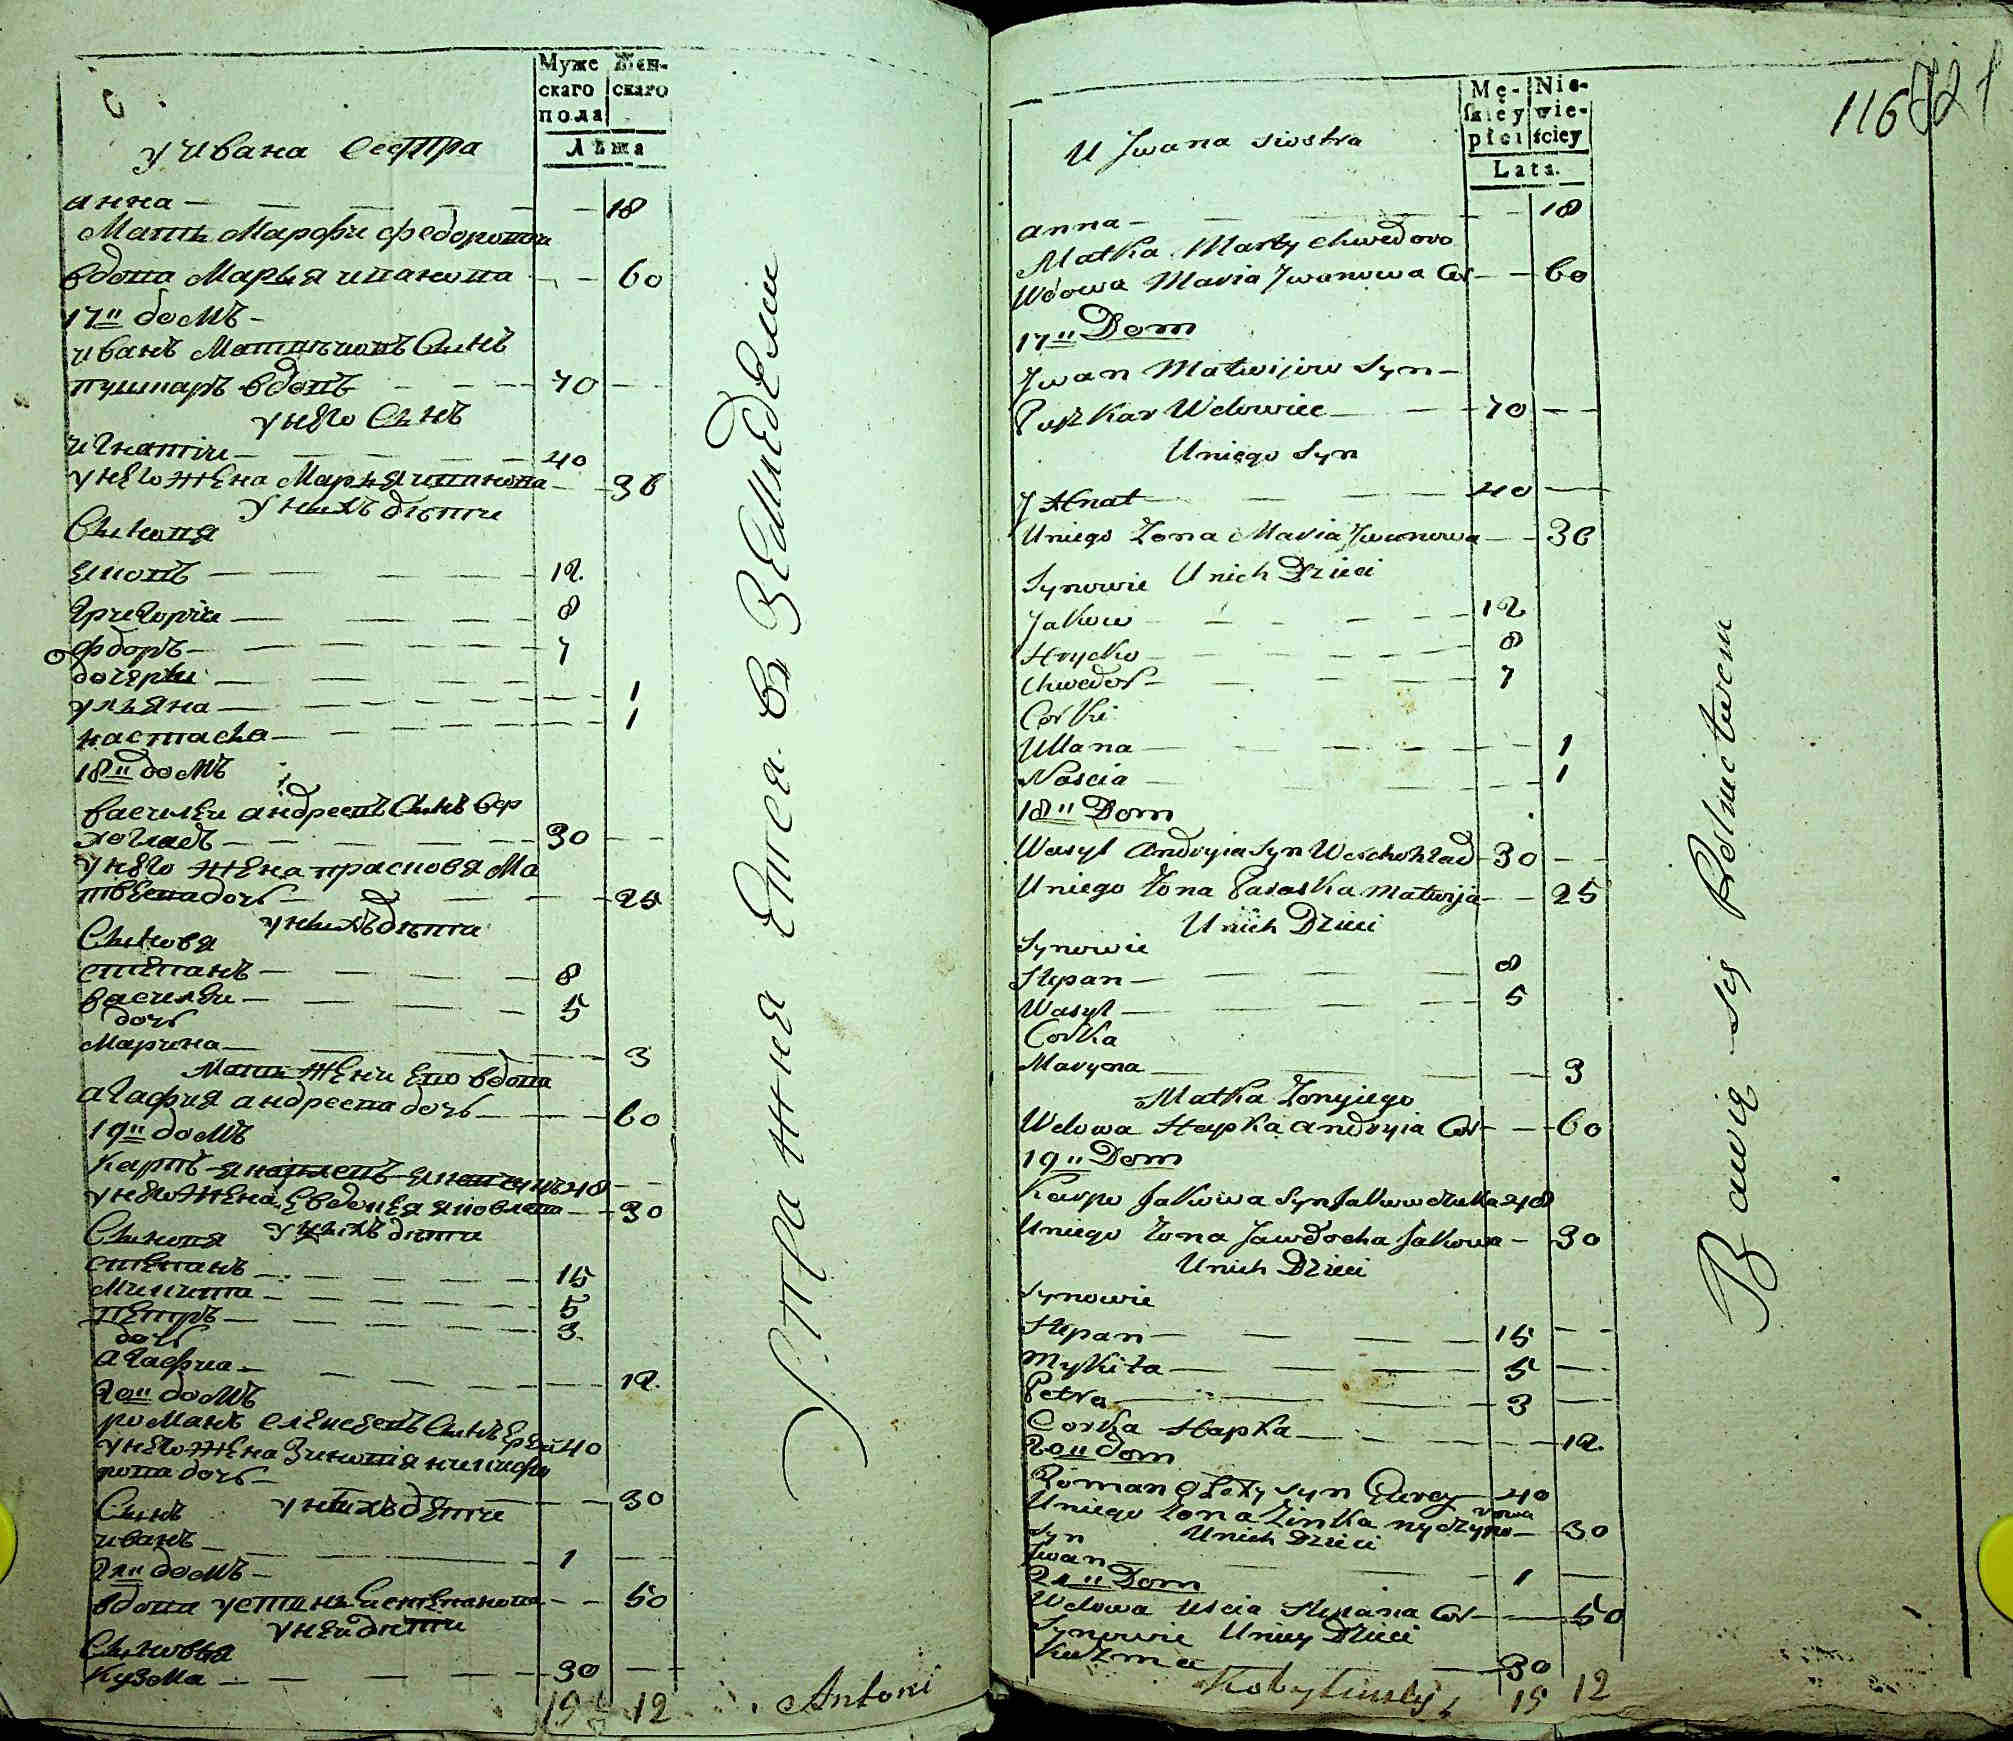 Муже Жен-
скаго скаго
пола
Лѣта
у ивана сестра
анна — — 18
Мать Марфы федорова
вдова Марья иванова — — 60
17" домъ —
иванъ Матвѣивъ Сынъ
пушкаръ вдовъ — 70 —
у него Сынъ
игнатіи — 40
у него жена Марья иванова — 36
у нихъ дѣти
Сыновя
яковъ — 12
григоріи — 8
фдоръ — 7
дочерьи —
ульяна — 1
настасья — 1
18" домъ
василеи андреевъ Сынъ вер
хогладъ — 30 —
у него жена прасковя Ма
твеева дочь — 25
у нихъ дѣти
Сыновя
степанъ — 8
василеи — 5
дочь
Марина — 3
Мать жени его вдова
агафия андреева дочь — 60
19" домъ
карпъ яковлевъ 48 —
у него жена Евдокея яковлева — 30
Сыновя у нихъ дѣти
степанъ — 15
Микита — 5
петръ — 3
дочь
агафиа — 12
20" домъ
романъ елисеевъ Сынъ 40
у него жена Зиновія никифо
рова дочь — 30
Сынъ у нихъ дѣти
иванъ — 1 —
21" домъ —
вдова устинья степанова — — 50
у неи дѣти
Сыновья
кузма — 30 —
19 12
Упражняется в Земледелии
Antoni
116
Mę- Nie-
skiey wie-
płci ściey
Lata.
U Jwana siostra
anna — 18
Matka Marfy Chwedoro
Wdowa Maria Jwanowa Cor — 60
17" Dom
Jwan Matwijow Syn —
Puszkar Wdowiec — 70 —
U niego Syn
JHnat — 40 —
U niego Zona Maria Jwanowa — 36
Synowie U nich Dzieci
Jakow — 12
Hrycko — 8
Chwedor — 7
Corki
Ullana — 1
Nascia — 1
18" Dom
Wasyl Andryia Syn Werchohlad — 30 —
U niego Zona Paraska Matwija — 25
U nich Dzieci
Synowie
Stepan — 8
Wasyl — 5
Corka
Maryna — 3
Matka Zony jego
Wdowa Hapka Andryia Cor — 60
19" Dom
Karpo Jakowa Syn 48
U niego Zona Jawdocha Jakowa — 30
U nich Dzieci
Synowie
Stepan — 15 —
Mykita — 5 —
Petra — 3 —
Corka Hapka — 12
20" dom
Roman syn 40
U niego Zona Zinka nyczypo rowa — 30
Syn U nich Dzieci
Jwan — 1 —
21" Dom
Wdowa Uscia Stepana Cor — 50
Synowie U niey Dzieci
Kuzma — 30
Kobyliński 19 12
Bawią się Rolnictwem